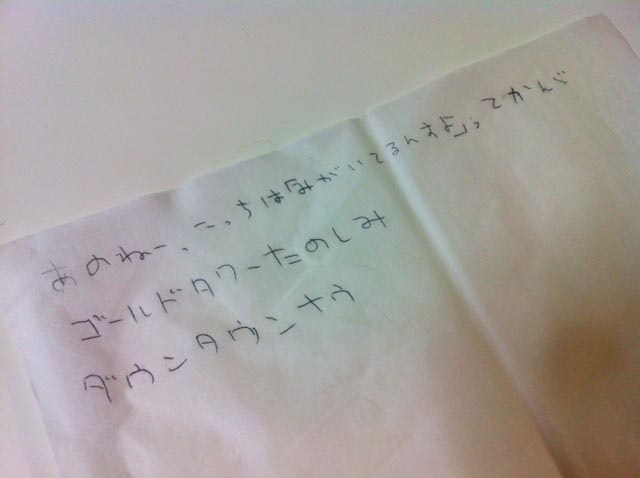 あのねー、こっちは「みがいてるんすよ」ってかんじ
ゴールドタワーたのしみ
ダウンタウンナウ